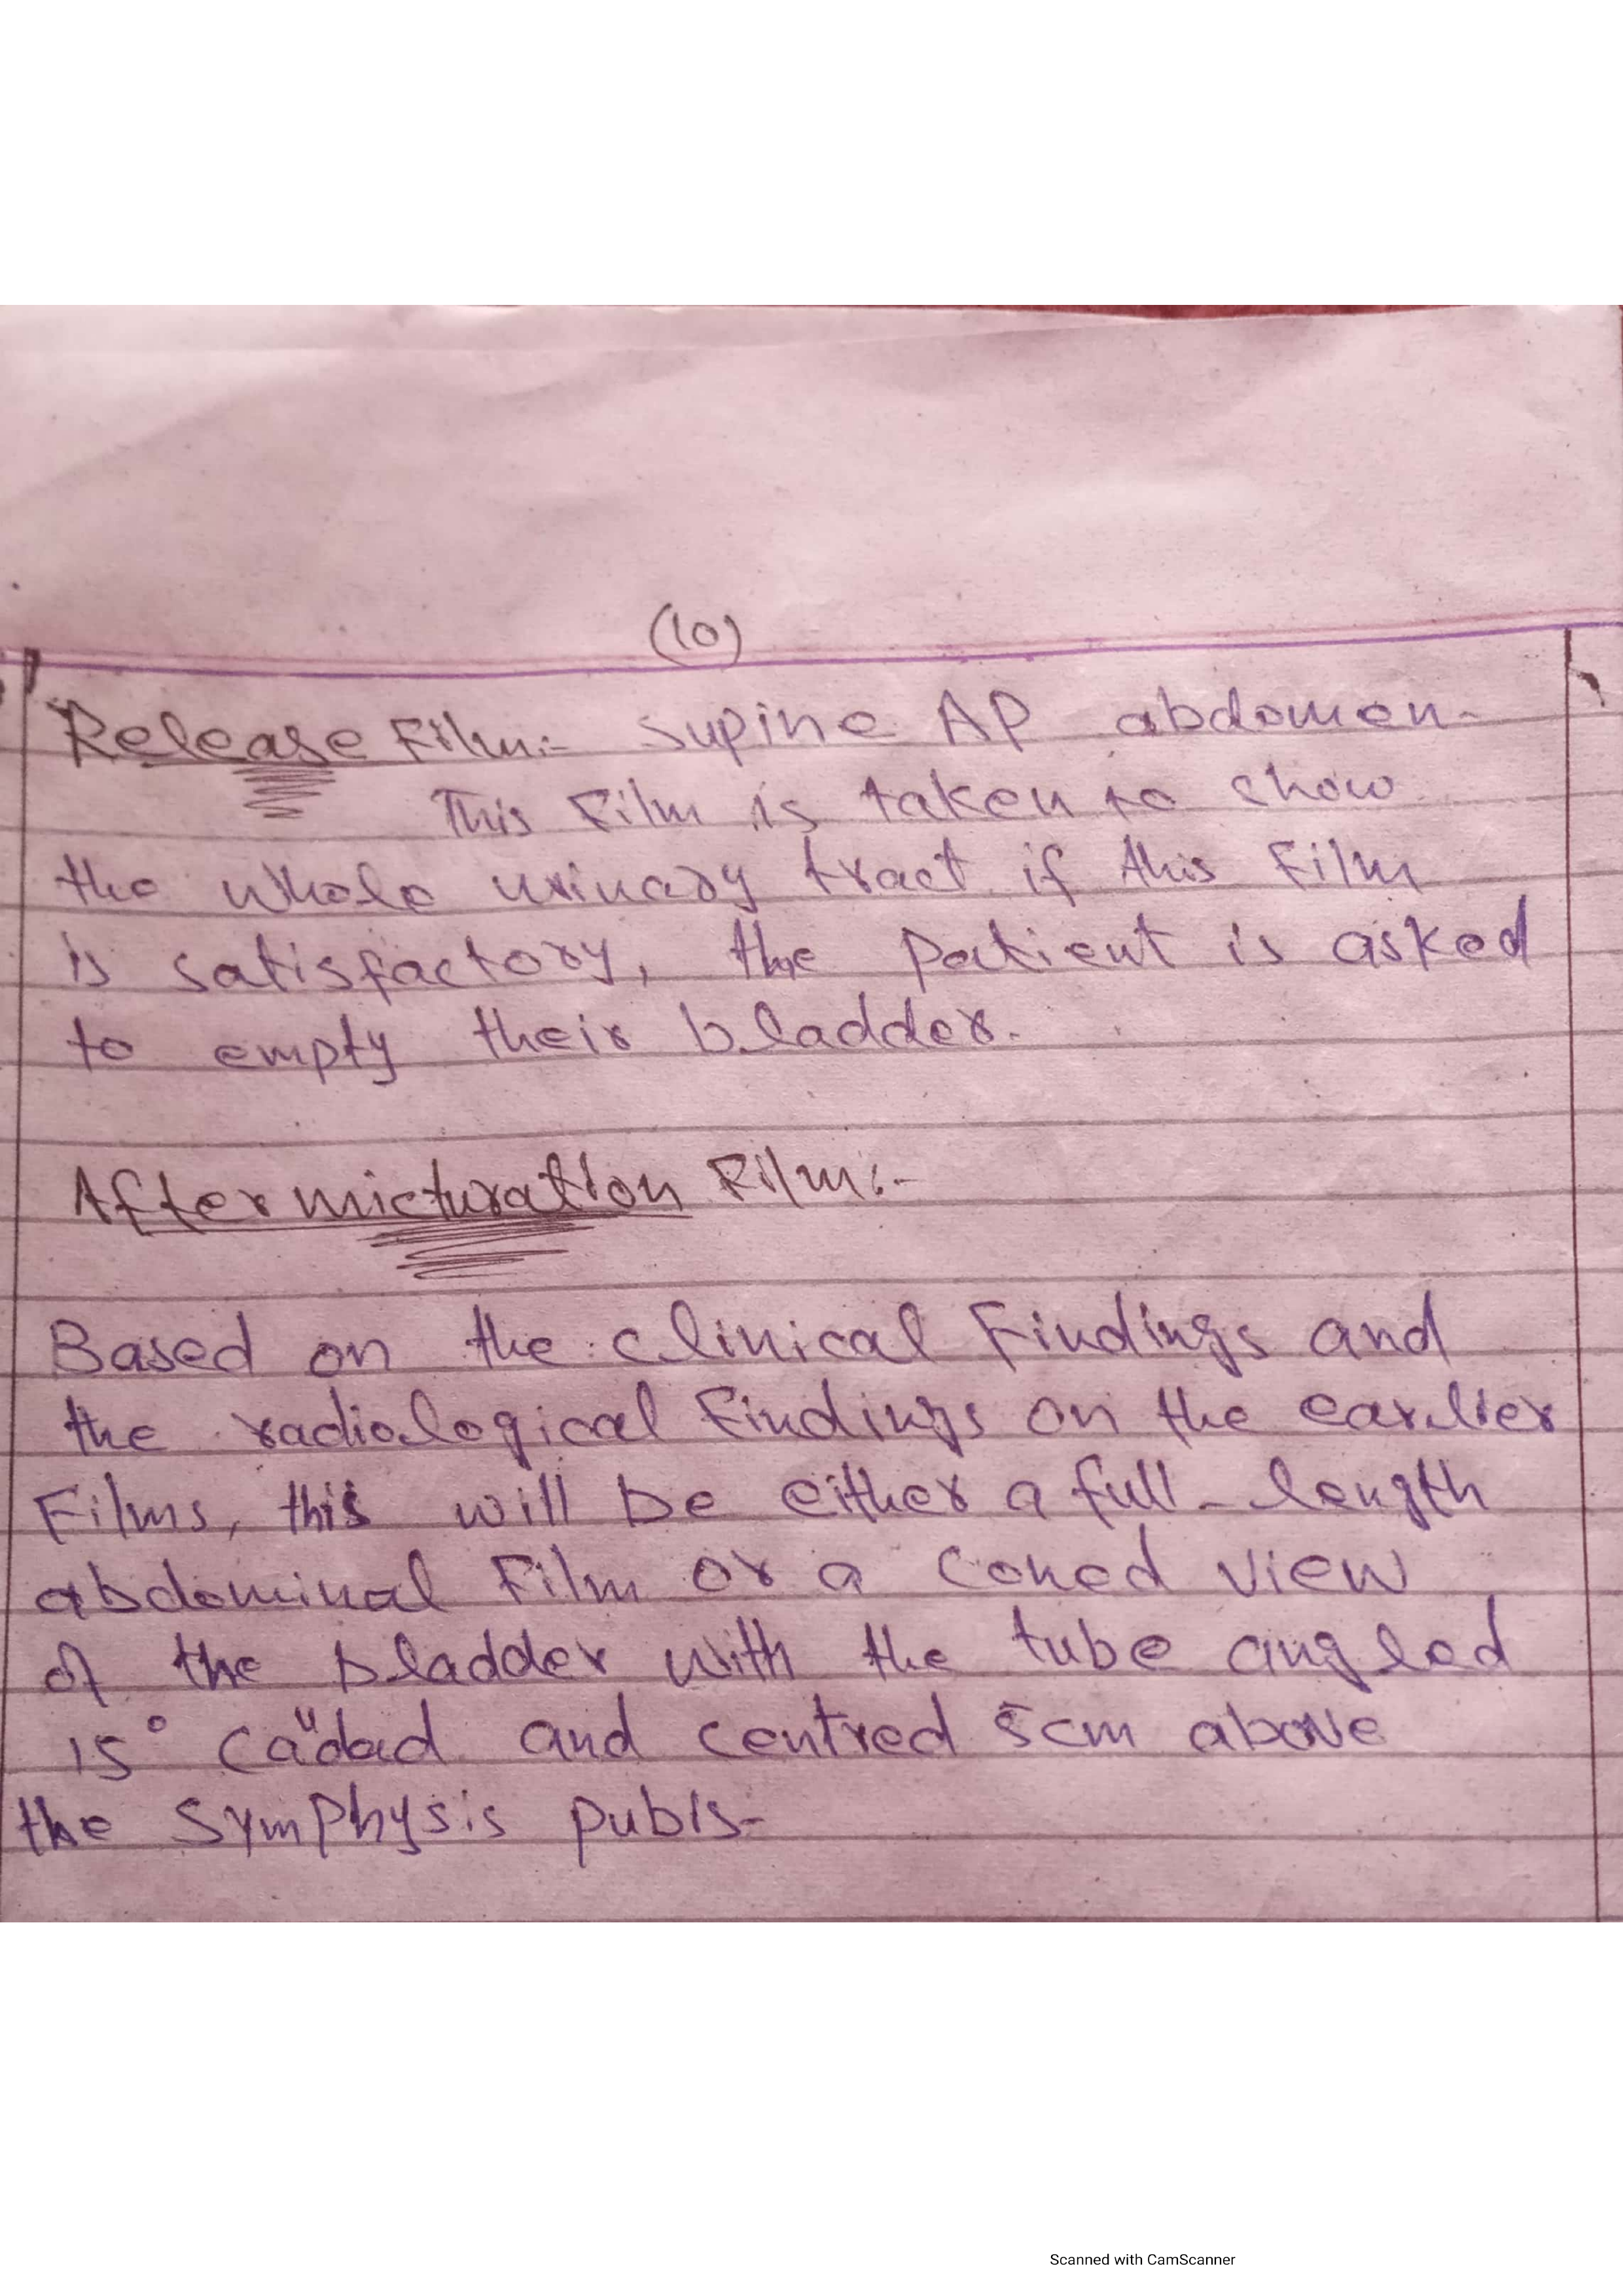 (10)
Release Film:- Supine AP abdomen-
This Film is taken to show
the whole urinary tract if this Film
is satisfactory, the patient is asked
to empty their bladder.
After micturation Film:-
Based on the clinical Findings and
the radiological Findings on the earlier
Films, this will be either a full-length
abdominal Film or a coned view
of the bladder with the tube angled
15° and centred 5cm above
the Symphysis pubis-
Scanned with CamScanner